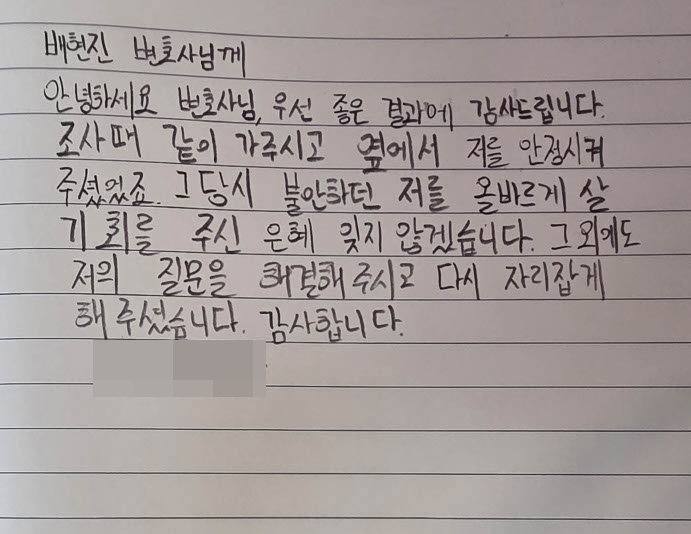 배현진 변호사님께
안녕하세요 변호사님, 우선 좋은 결과에 감사드립니다.
조사때 같이 가주시고 옆에서 저를 안정시켜
주셨었죠. 그 당시 불안하던 저를 올바르게 살
기회를 주신 은혜 잊지 않겠습니다. 그 외에도
저의 질문을 해결해 주시고 다시 자리잡게
해 주셨습니다. 감사합니다.